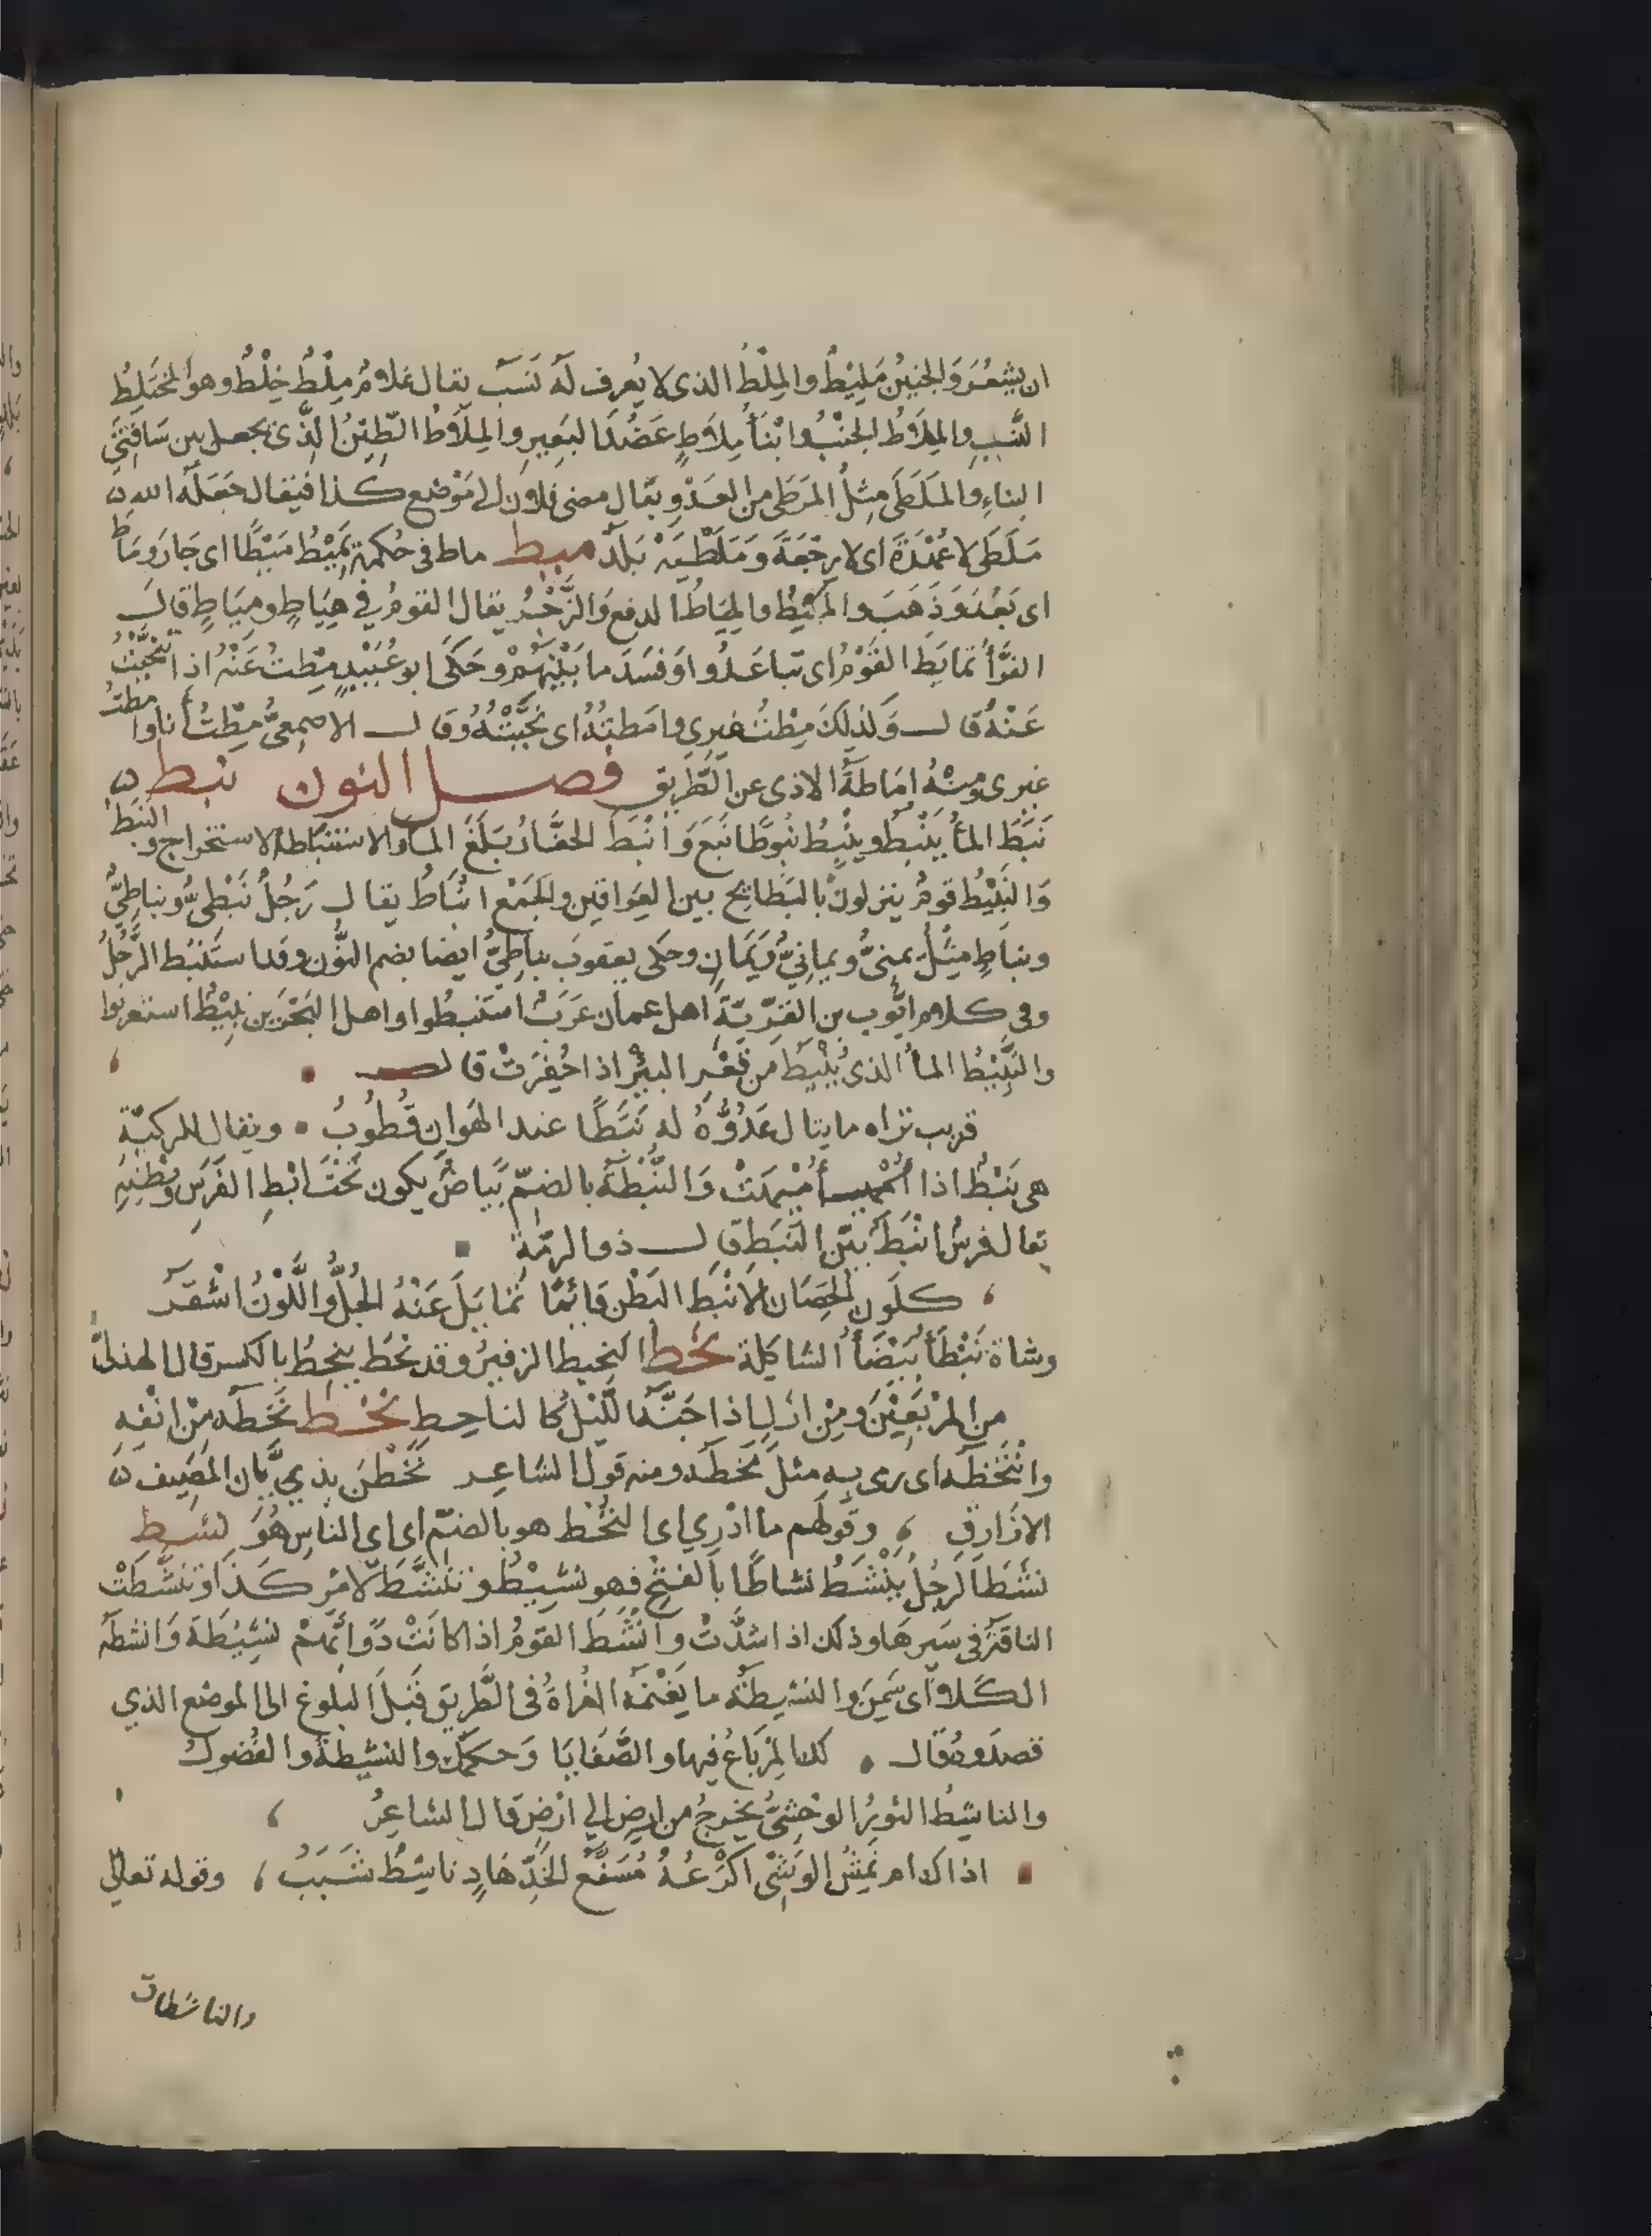 ان يشعُرَ وَالجنينُ مَلِيْطٌ والمِلْطُ الذى لا يُعرف لَهُ نَسَبٌ يقال غلامٌ مِلْطٌ خِلْطٌ وهوَ المختَلِطُ
النَّسَبِ والمِلَاطُ الجَنْبُ وابْنَا مِلَاطٍ عَضُدَا البَعِيرِ والمِلَاطُ الطِّينُ الَّذى يجعل بين سَافَتَيْ
البناءِ والمَلَطَى مِثلُ المَرَطَى من العَدْوِ يقال مضى فلان الى مَوْضع كذا فيقال جَعَلَهُ الله
مَلَطَى لا عُهْدَةَ اى لا رجْعَةَ وَمَلَطْيَةُ بَلَدٌ ميط ماط فى حُكمهِ يَمِيْطُ مَيْطًا اى جَارَ ومَاطَ
اى بَعُدَ وَذَهَبَ والمَيْطُ والمِيَاطُ الدفع وَالزَّجْرُ يقال القومُ فى هِيَاطٍ ومِيَاطٍ قال
الفرَّأُ تمايَطَ القَوْمُ اى تباعَدُوا وَفسَدَ ما بَيْنَهُمْ وحَكَى ابو عُبَيْدٍ مِطتُ عَنْهُ اذا تنحَّيْتُ
عَنْهُ قال وَكذلِكَ مِطْتُ غيرى وامَطتُهُ اى نَحَّيْتُهُ وَقال الاصمعىُّ مِطْتُ أنا وامطتُ
غيرى ومِنْهُ امَاطَةُ الاذى عن الطَّريق فصل النون نبط
نَبَطَ المأُ يَنْبِطُ ويَنْبُطُ نُبُوطًا نَبَعَ وَأنْبَطَ الحفَّارُ بَلَغَ المأ والاستنباط الاستخراج والنبَطُ
وَالنَّبِيْطُ قومٌ ينزلون بالبَطَايح بين العِرَاقين والجَمْع انْبَاطٌ يقال رَجُلٌ نَبَطىٌّ ونباطِىٌّ
ونباطٍ مثلُ يمنىٍّ ويمانِىٍّ وَيَمَانٍ وحكى يعقوبُ نباطِىٌّ ايضا بضم النُّون وقد استَنْبَط الرَّجُلُ
وفى كلام ايّوب بن القِرّيّةِ اهل عمان عَرَبٌ استَنبطُوا واهل البَحْرَين نبِيْطٌ استعربوا
والنَّبِيْطُ المأُ الذى يُنْبَطُ من قَعْرِ البئْرِ اذا حُفِرَتْ قال
قريب تراه ما ينال عَدُوُّهُ له نَبَطًا عند الهَوانِ قُطُوبُ ويقال للركيّة
هى نَبَطٌ اذا أُمِيهَتْ وَالنُّبْطَةُ بالضمّ بَيَاضٌ يكون تَحْتَ ابْطِ الفَرَسِ وَبَطْنِهِ
يقال فرسٌ انْبَطُ بَيِّن النَّبَطِ قال ذو الرمّة
كلَون الحِصَان الانْبَطِ البَطْن قَائمًا تمَايَلَ عَنْهُ الجُلُّ واللَّوْنُ اشْقَرُ
وشاة نَبْطَأُ بَيْضَأُ الشاكِلة نحط النحيط الزفيرُ وقد نحَط ينحِطُ بالكسر قال الهذلىّ
من المرْبَعِيْنَ ومِنْ ازلٍ اذا جَنَّهُ اللّيْلُ كالناحِطِ نخط نَخَطَه من انْفه
وانْتَخَطَه اى رمى به مثلَ مَخَطَه ومنه قول الشاعر نَخَطْنَ بذبَّان المَصِيف
الازارق وقولهم ما ادْرِي اي النُخْط هو بالضمّ اى اى الناسِ هُوَ نشط
نشَطَ الرجُلُ يَنْشَطُ نشاطًا بالفتح فهو نشِيْطٌ وتنَشَّطَ لامْر كَذَا وَتنَشَّطَتْ
الناقَةُ فى سَيرهَا وذلك اذا اشْدَّتْ وانْشَطَ القومُ اذا كانَتْ دَوابّهُمْ نشِيْطَة وَانشطَهُ
الكَلأُ اى سَمِنَ والنشيطَةُ ما يَغْنمُه الغُزاةُ فى الطَّريق قَبْلَ البلوغ الى الموضع الذي
قصدُوهُ قال لك المِرْباعُ فيها والصَّفَايَا وَحكمُكَ والنشيطةُ والفُضولُ
والناشِطُ الثورُ الوحْشىُّ يخرجُ من ارضٍ الي ارْضٍ قال الشاعِرُ
اذاك ام نَمِشٌ الوَشْى اكْرُعُهُ مُسَفَّعُ الخَدِّ هَادٍ ناشِطٌ شَبَبُ وقوله تعالىٰ
والناشطات